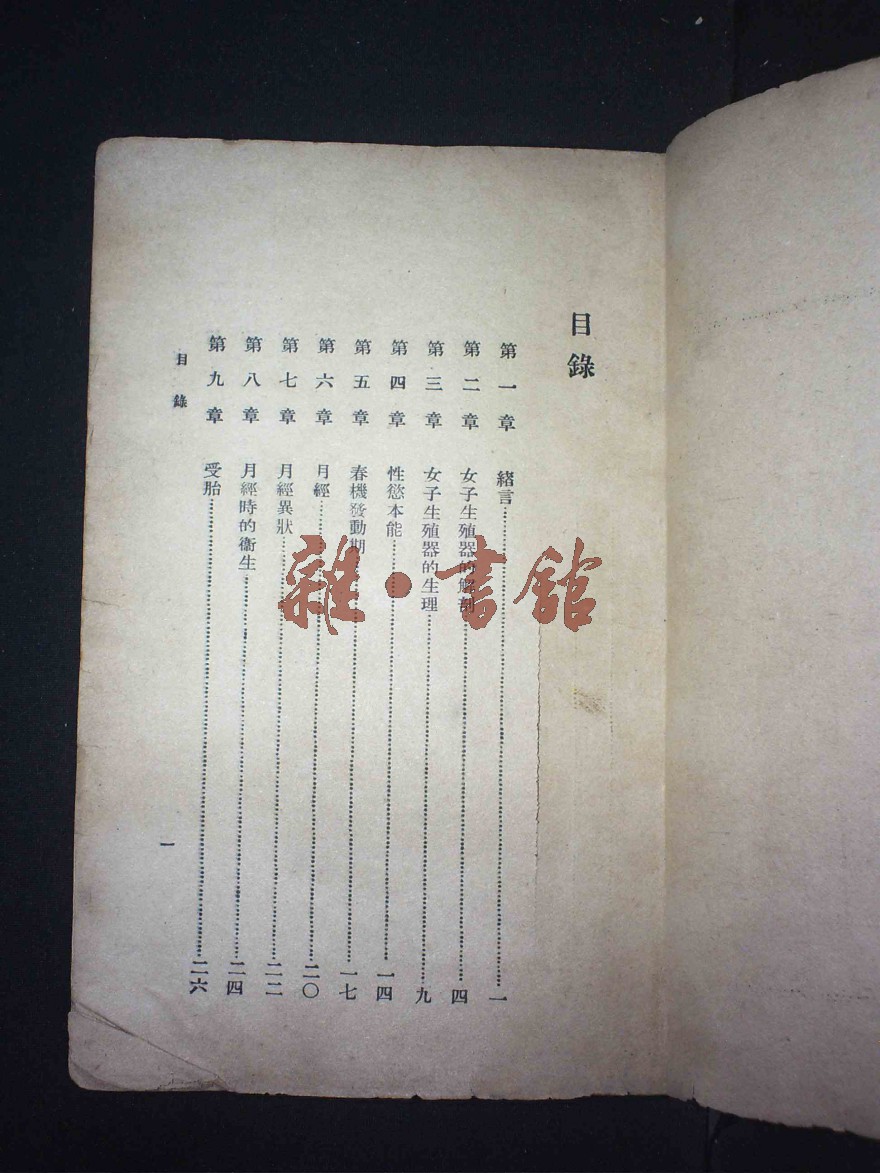 目錄
第一章 緒言……一
第二章 女子生殖器的解剖……四
第三章 女子生殖器的生理……九
第四章 性慾本能……一四
第五章 春機發動期……一七
第六章 月經……二〇
第七章 月經異狀……二二
第八章 月經時的衞生……二四
第九章 受胎……二六
目錄
一
雜·書館